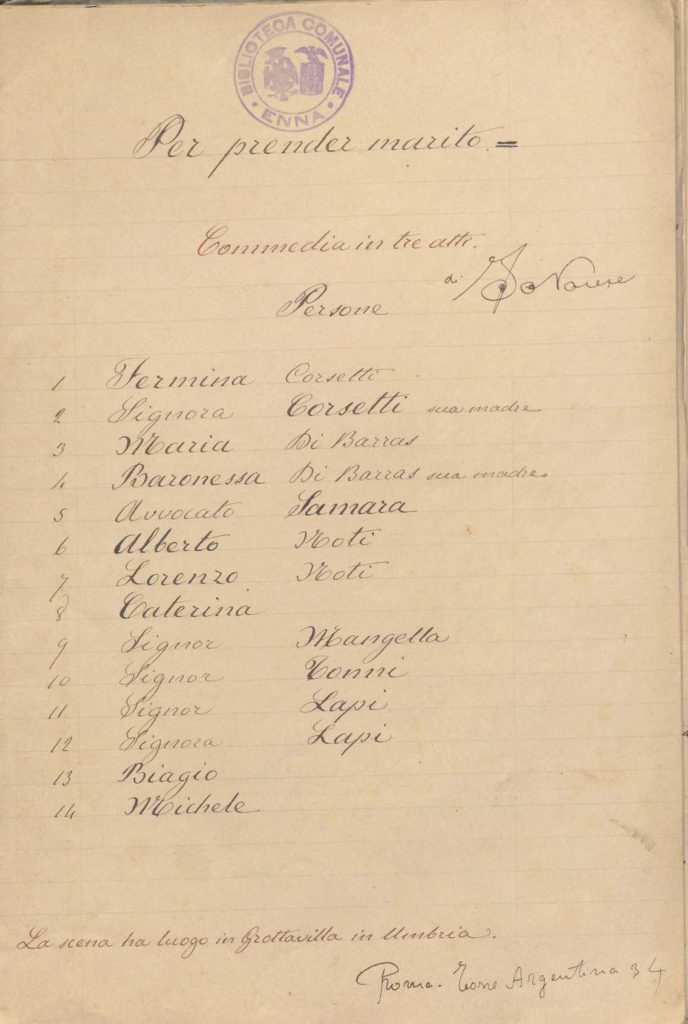 BIBLIOTECA COMUNALE
ENNA
Per prender marito. =
Commedia in tre atti.
di
Persone
1 Fermina Corsetti
2 Signora Corsetti sua madre
3 Maria Di Barras
4 Baronessa Di Barras sua madre
5 Avvocato Samara
6 Alberto Noti
7 Lorenzo Noti
8 Caterina
9 Signor Mangella
10 Signor Tonni
11 Signor Lapi
12 Signora Lapi
13 Biagio
14 Michele
La scena ha luogo in Grottavilla in Umbria.
Roma - Torre Argentina 34